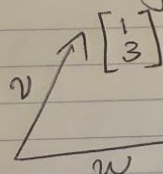 v [1
3]
w